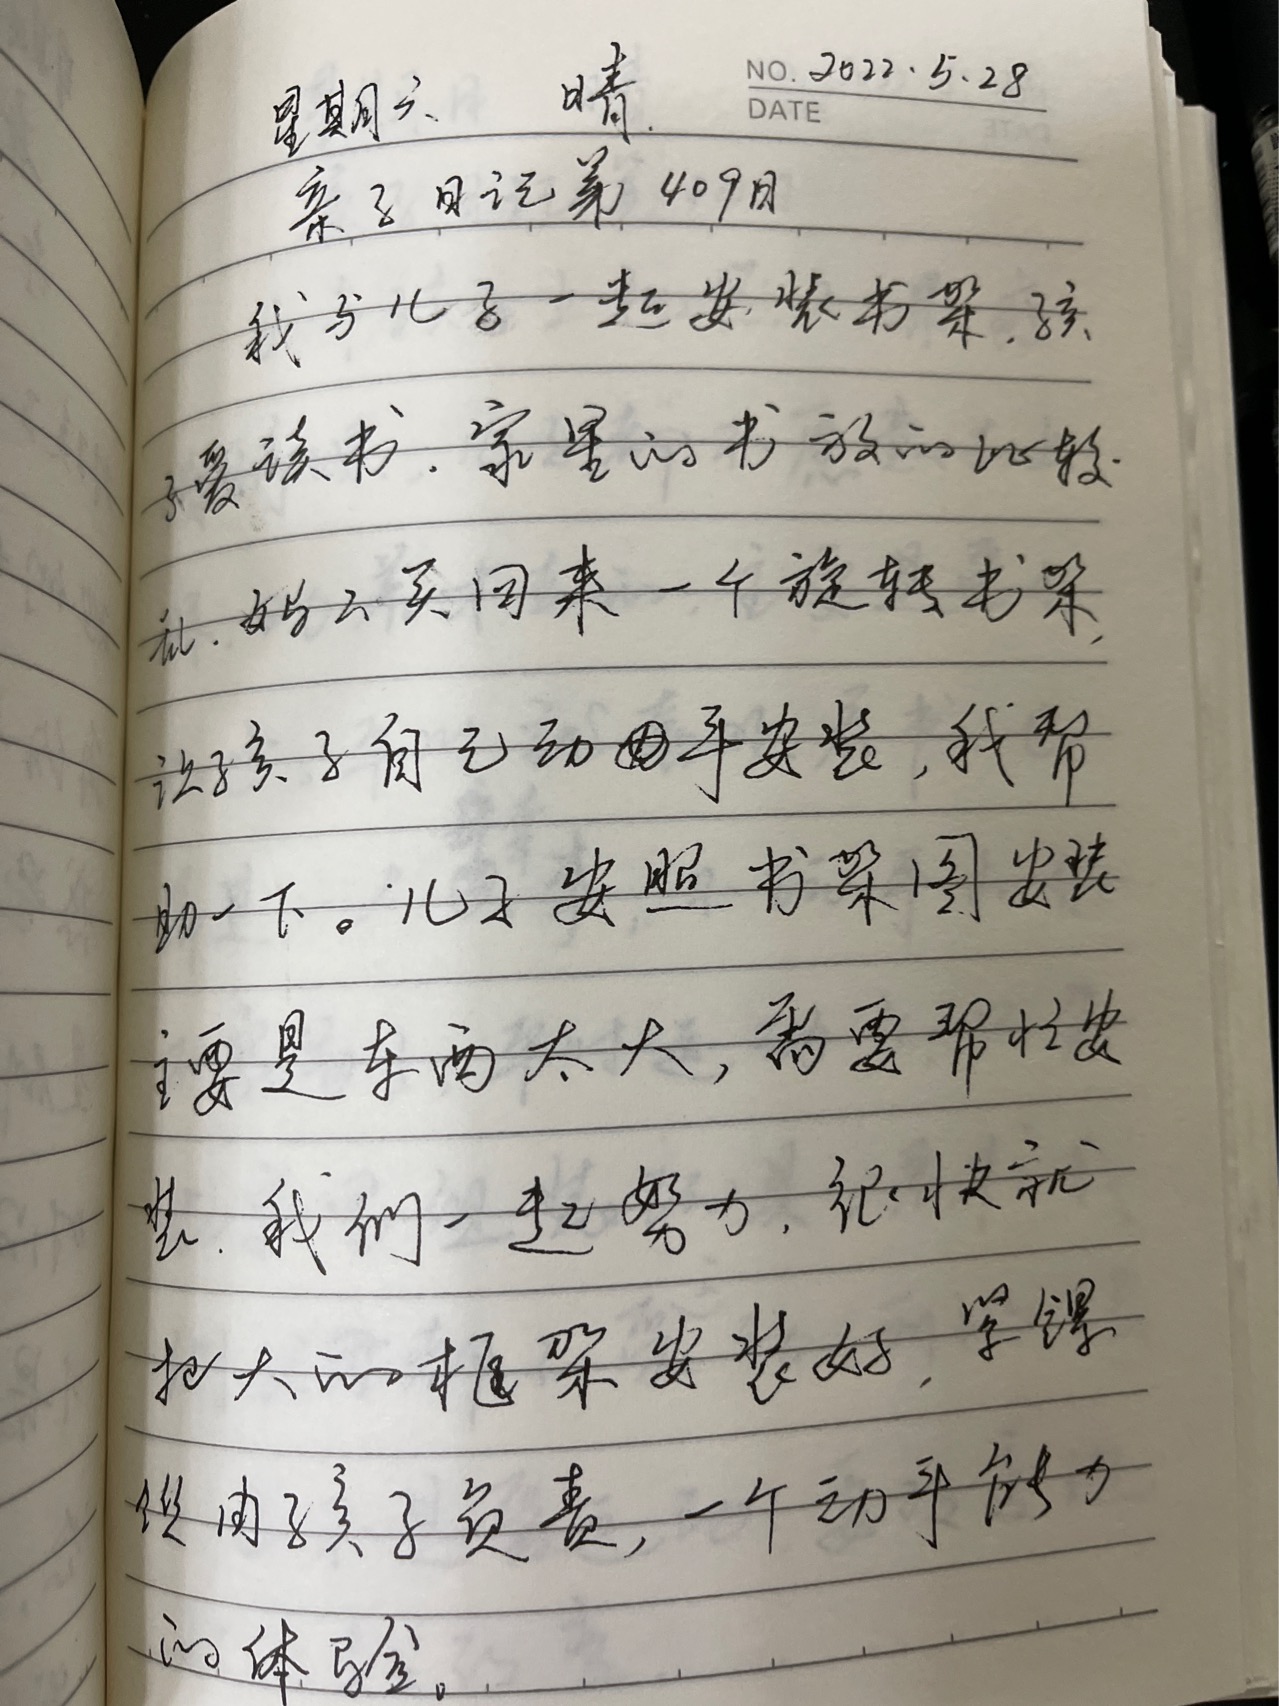 NO. 2022.5.28
星期六 晴.
DATE
亲子日记第409日
我与儿子一起安装书架.孩
子爱读书.家里的书放的比较
乱.妈又买回来一个旋转书架,
让孩子自己动手安装,我帮
助一下。儿子安照书架图安装
主要是东西太大,需要帮忙安
装.我们一起努力.很快就
把大的框架安装好,紧镙
由孩子负责,一个动手能力
的体验。